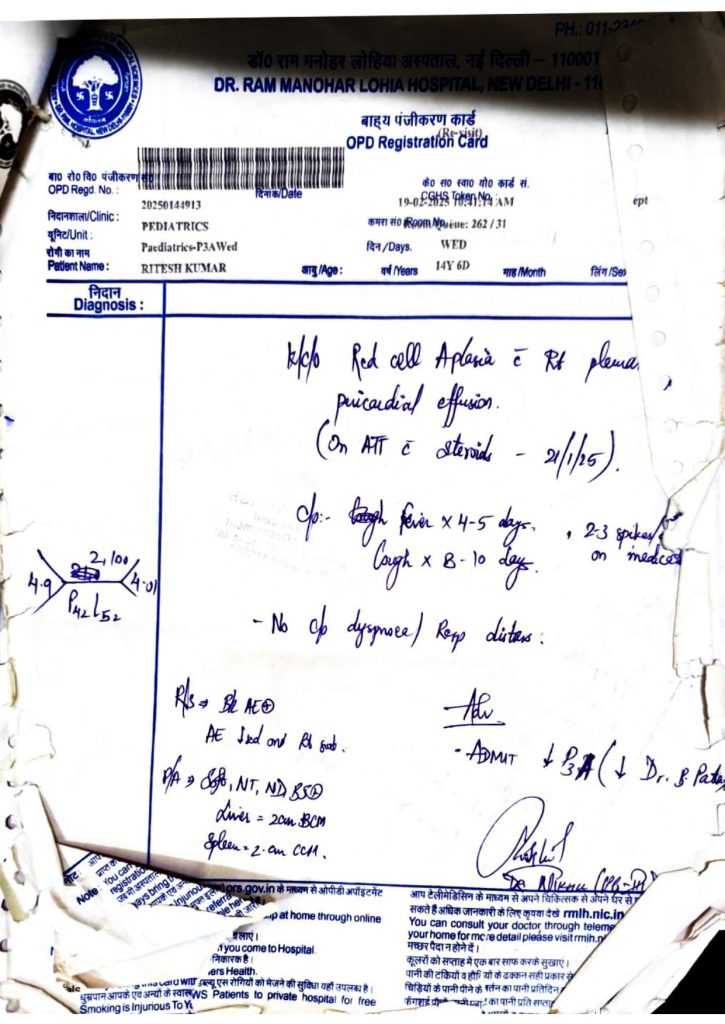 PH.: 011-234
डॉ० राम मनोहर लोहिया अस्पताल, नई दिल्ली – 110001
DR. RAM MANOHAR LOHIA HOSPITAL, NEW DELHI - 11
बाह्य पंजीकरण कार्ड
(Re-visit)
OPD Registration Card
बा० रो० वि० पंजीकरण
OPD Regd. No. : 20250144913
दिनांक/Date 19-02-2025 10:41:14 AM
के० स० स्वा० यो० कार्ड सं.
CGHS Token No.
ept
निदानशाला/Clinic : PEDIATRICS
कमरा सं०/Room No. Queue: 262 / 31
यूनिट/Unit : Paediatrics-P3AWed
दिन/Days. WED
रोगी का नाम
Patient Name : RITESH KUMAR
आयु/Age : वर्ष/Years 14Y 6D माह/Month लिंग/Sex
निदान
Diagnosis :
k/c/o Red cell Aplasia c̄ Rt pleura
pericardial effusion.
(On ATT c̄ steroids - 21/1/25).
c/o:- fever x 4-5 days, , 2-3 spikes/
Cough x 8-10 days. on medicat
2,100
4.9 4.01
P42 L52
- No c/o dyspnoea/ Resp distress.
R/S → B/L AE⊕
AE ↓sed on Rt
Adv
- ADMIT ↓ P3A (↓ Dr. B. Pata
P/A → Soft, NT, ND BS⊕
Liver = 2cm BCM
Spleen = 2 cm BCM.
Note : You can
registration
ors.gov.in के माध्यम से ओपीडी अपॉइटमेंट
at home through online
you come to Hospital.
ers Health.
EWS Patients to private hospital for free
धूम्रपान आपके एवं अन्यों के स्वास्थ
Smoking is Injurious To Y
आप टेलीमेडिसिन के माध्यम से अपने चिकित्सक से अपने घर से
सकते हैं अधिक जानकारी के लिए कृपया देखे rmlh.nic.in
You can consult your doctor through teleme
your home for more detail please visit rmlh.n
मच्छर पैदा न होने दें ।
कूलरों को सप्ताह में एक बार साफ करके सुखाएं।
पानी की टंकियों व हौदियों के ढक्कन सही प्रकार से
चिड़ियों के पानी पीने के बर्तन का पानी प्रतिदिन
का पानी प्रति सप्ताह